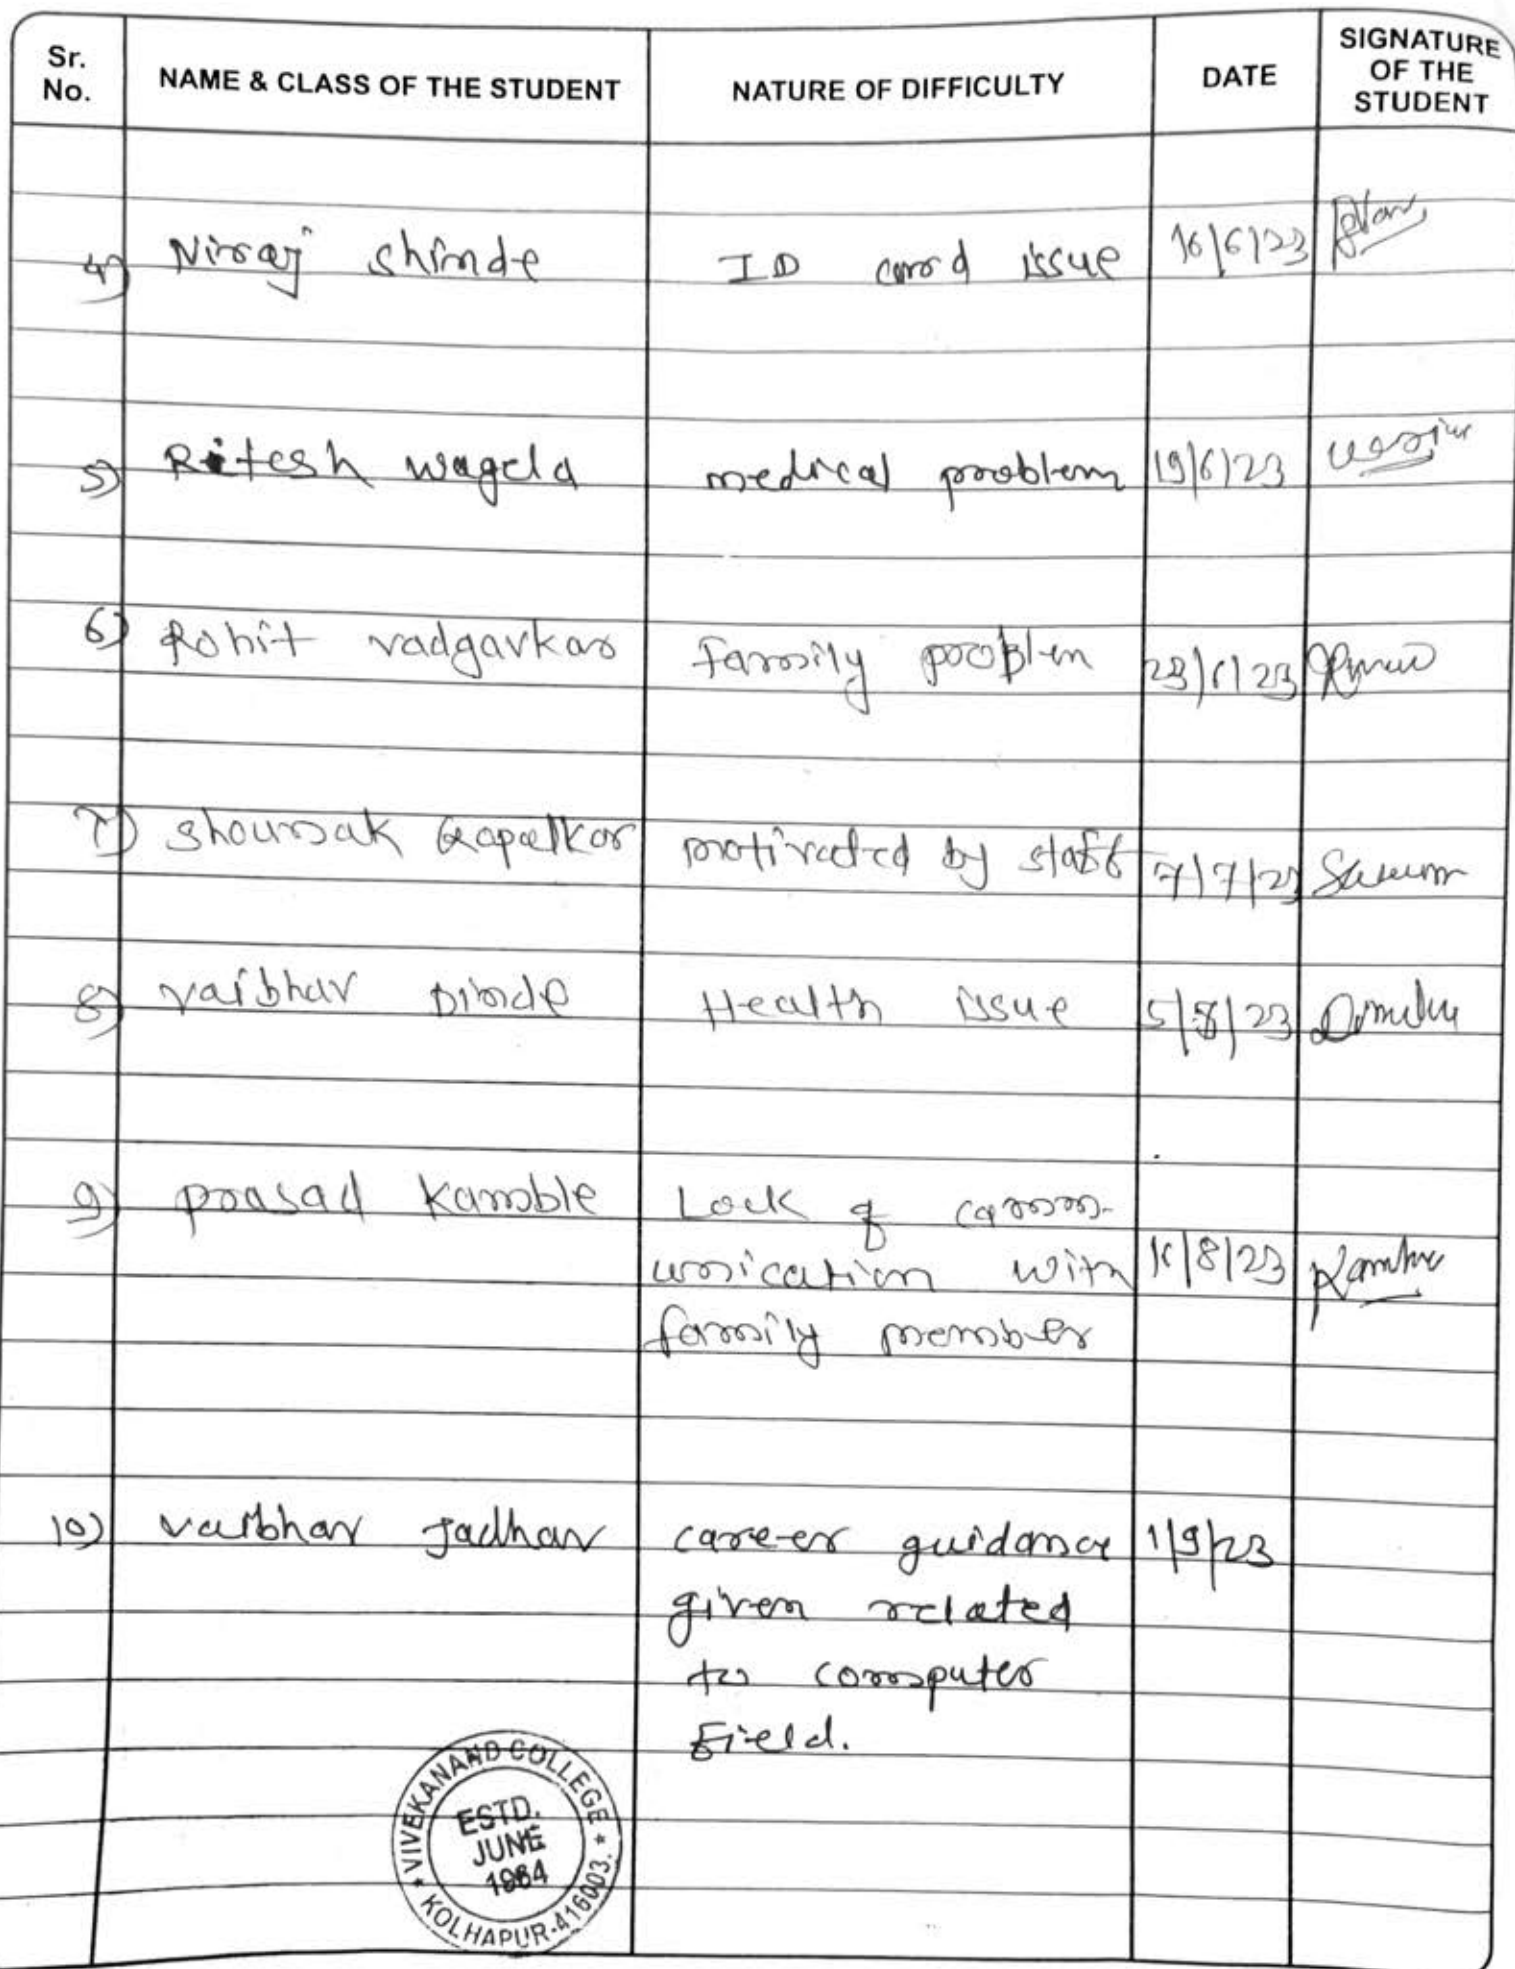 Sr. No. NAME & CLASS OF THE STUDENT NATURE OF DIFFICULTY DATE SIGNATURE OF THE STUDENT
4) Niraj Shinde ID card issue 16/6/23
5) Ritesh wagela medical problem 19/6/23
6) Rohit vadgavkar family problem 23/6/23
7) motivated by staff 7/7/23
8) vaibhav Dinde Health issue 5/8/23
9) prasad Kamble Lack of comm-
unication with /8/23
family member
10) vaibhav Jadhav career guidance 1/9/23
given related
to computer
Field.
* VIVEKANAND COLLEGE *
ESTD.
JUNE
1964
KOLHAPUR-416003.